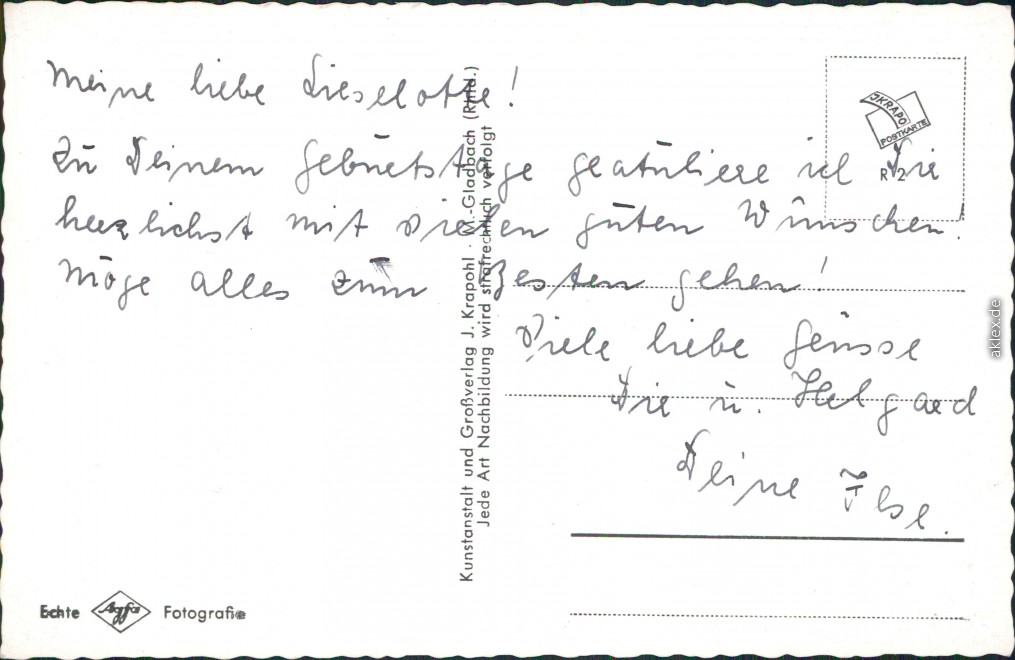 Meine liebe Lieselotte!
Zu Deinem Geburtstage gratuliere ich Dir
herzlichst mit vielen guten Wünschen.
Möge alles zum Besten gehen!
Viele liebe Grüsse
Dir u. Helgard
Deine Ilse.
JKRAPO
POSTKARTE
R 2
Kunstanstalt und Großverlag J. Krapohl · M.-Gladbach (Rhld.)
Jede Art Nachbildung wird strafrechtlich verfolgt
Echte Agfa Fotografie
aklex.de